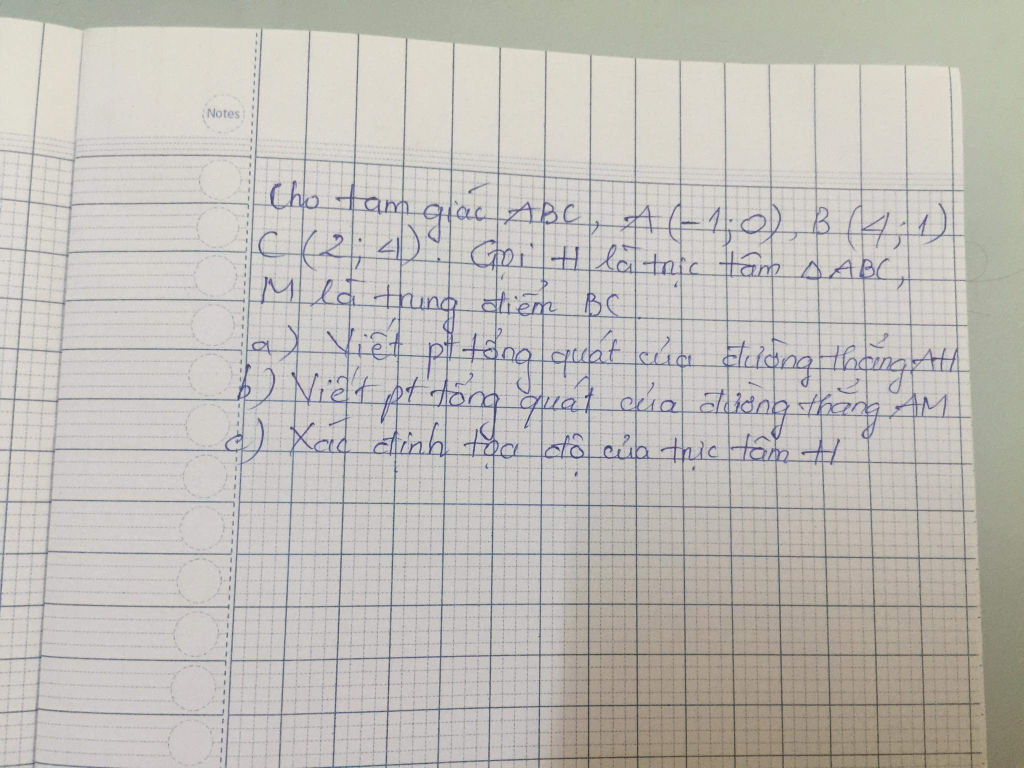 Notes
Cho tam giác ABC, A(-1;0), B(4;1)
C (2; 4). Gọi H là trực tâm ΔABC,
M là trung điểm BC
a) Viết pt tổng quát của đường thẳng AH
b) Viết pt tổng quát của đường thẳng AM
c) Xác định tọa độ của trực tâm H